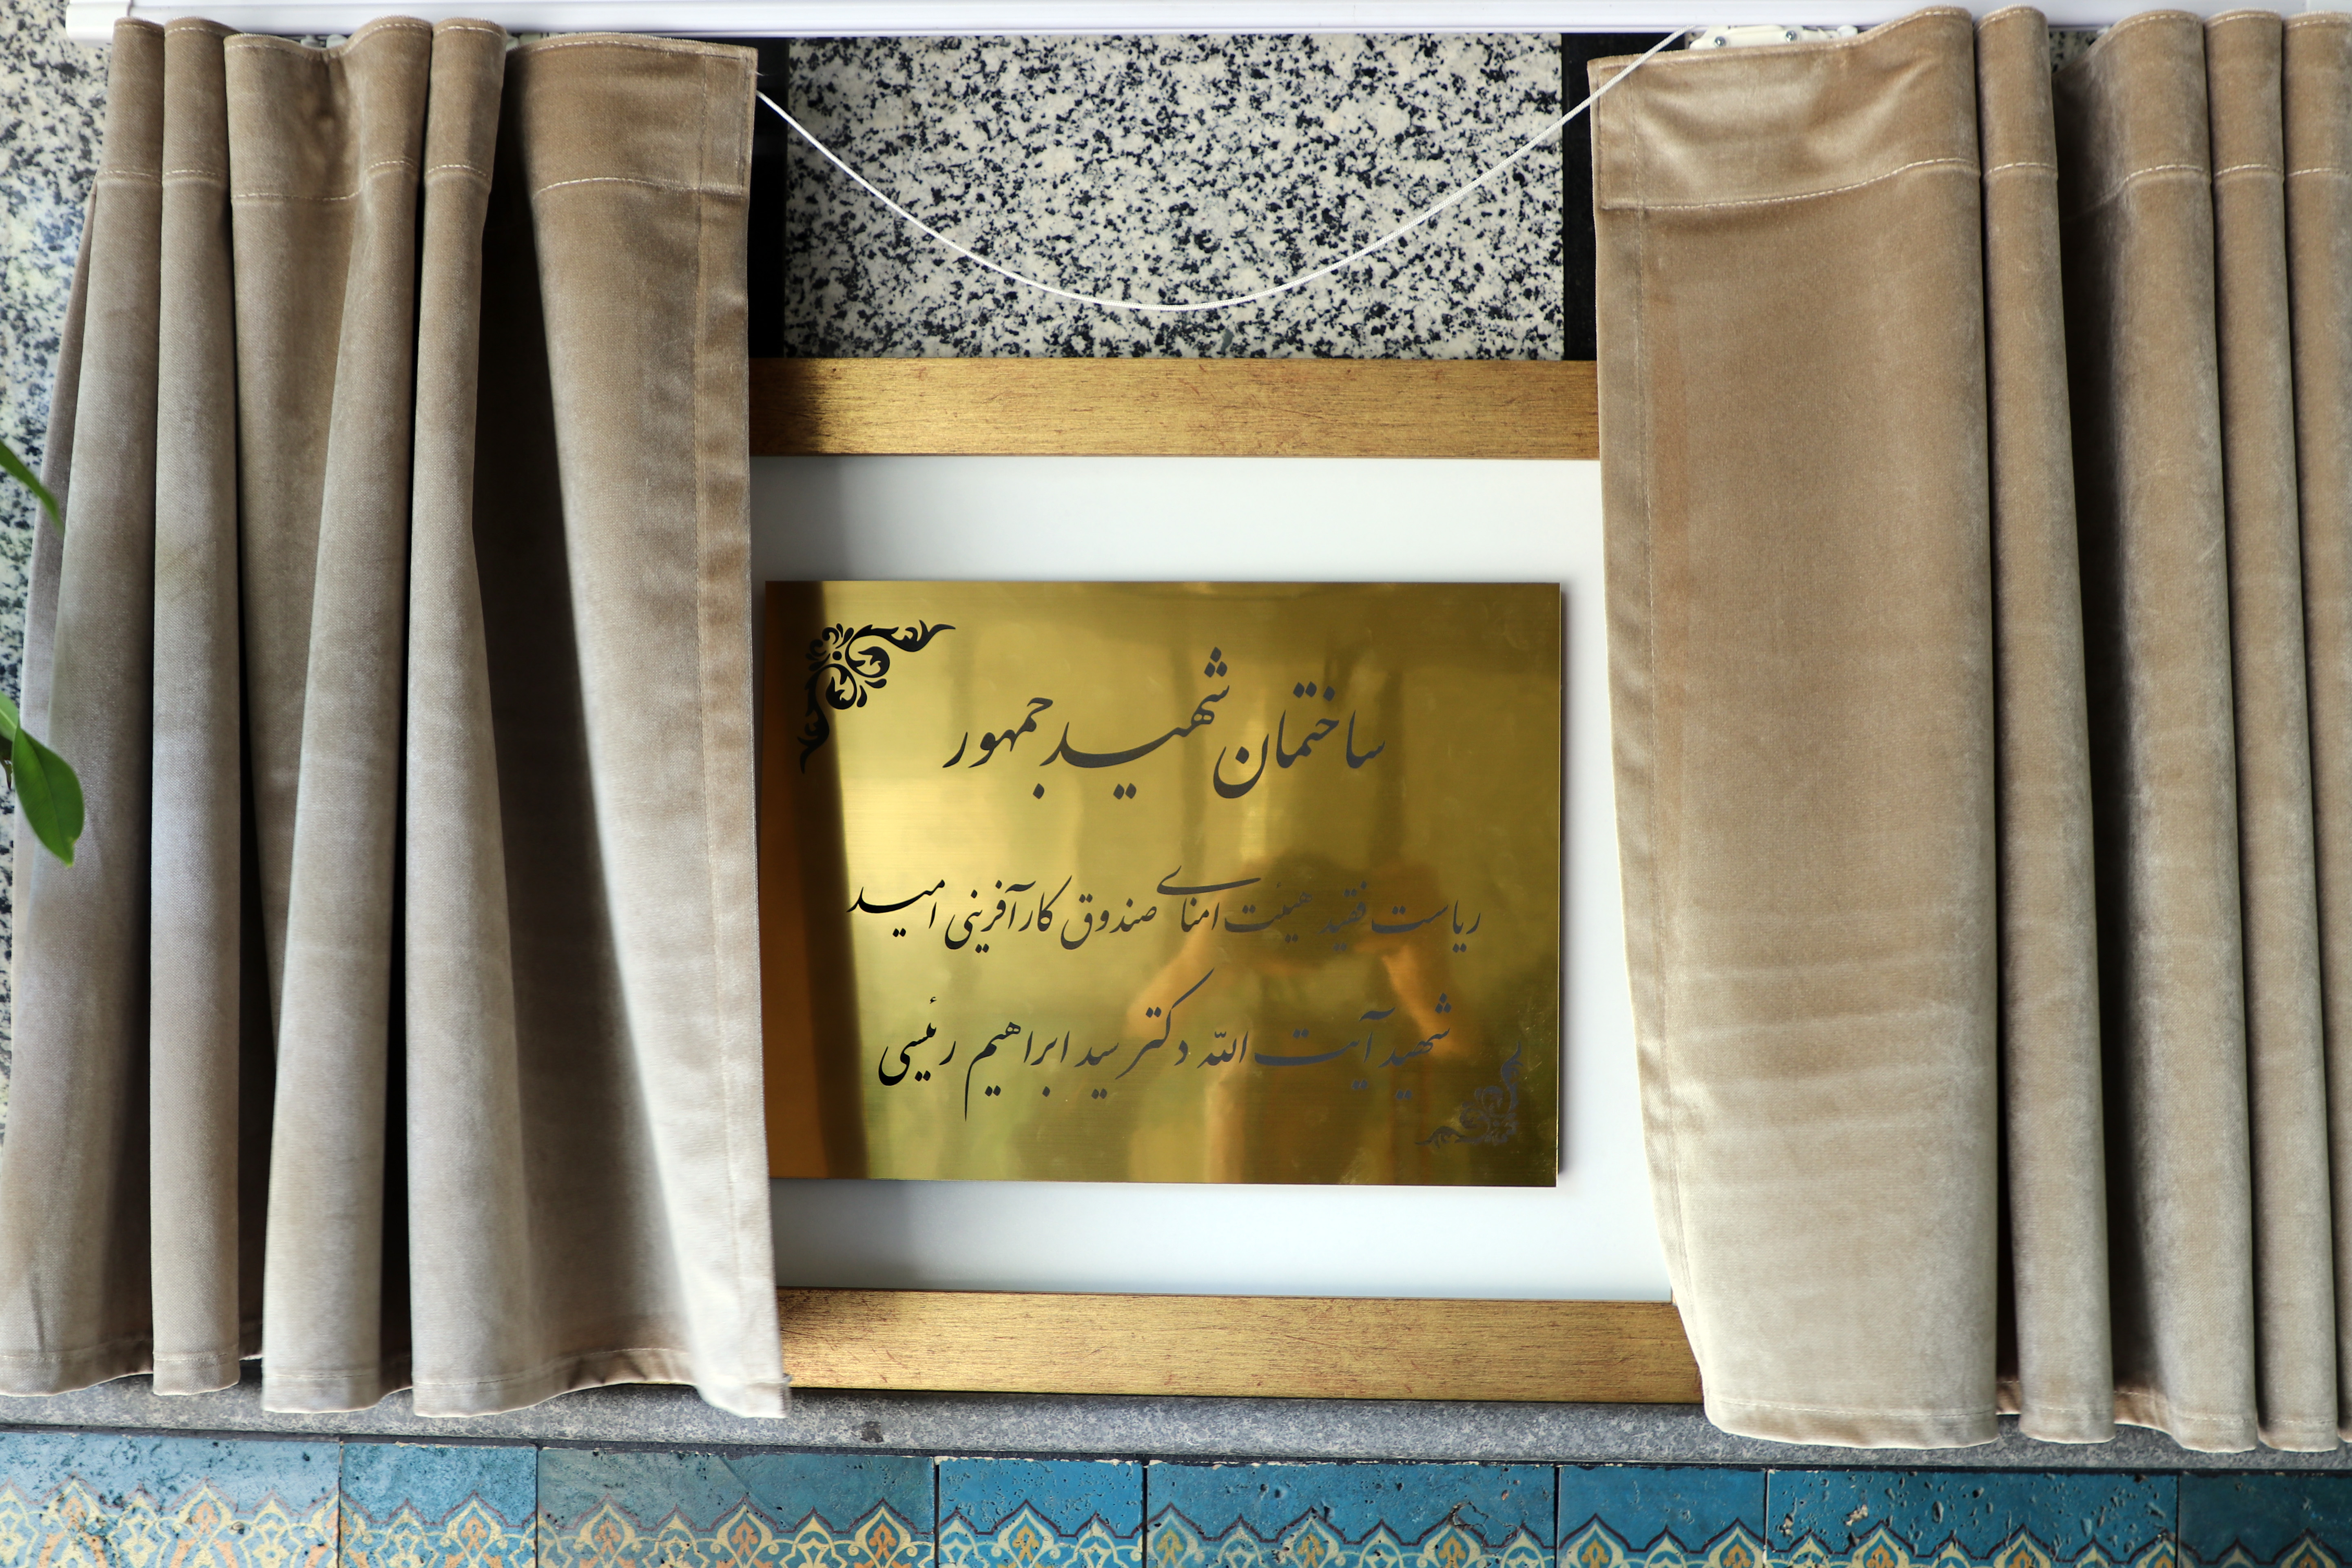 ساختمان شهید جمهور
ریاست فقید هیئت امنای صندوق کارآفرینی امید
شهید آیت الله دکتر سید ابراهیم رئیسی